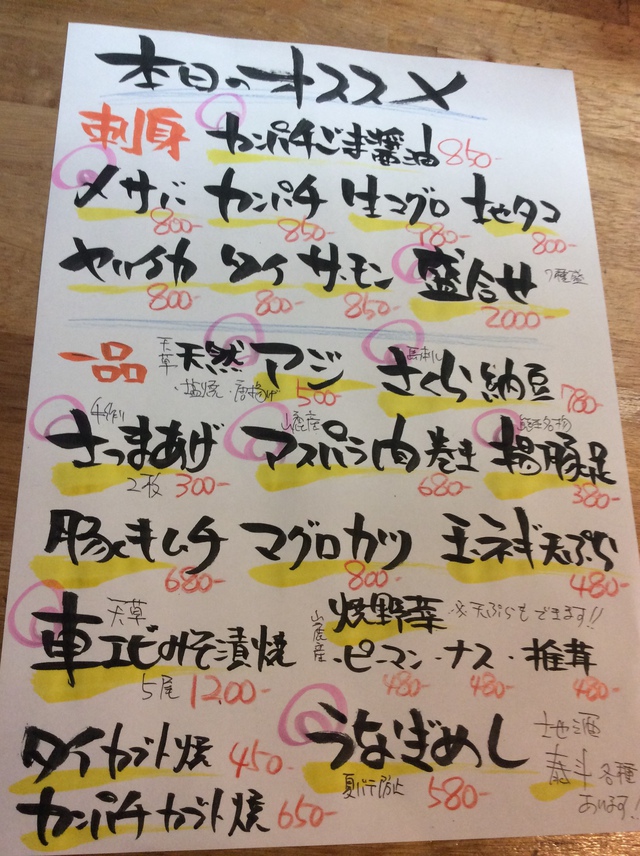 本日のオススメ
刺身 カンパチごま醤油 850-
メサバ 800- カンパチ 850- 生マグロ 780- 地タコ 800-
ヤリイカ 800- タイ 800- サーモン 850- 盛合せ 2000- 7種盛
一品 天草 天然アジ 500- 馬刺し さくら納豆 780-
・塩焼・唐揚げ
手作り さつまあげ 2枚 300- 山鹿産 アスパラ肉巻き 680- 熊本名物 揚豚足 380-
豚キムチ 680- マグロカツ 800- 玉ネギ天ぷら 480-
天草 車エビみそ漬焼 5尾 1200-
山鹿産 焼野菜 ※天ぷらもできます!!
・ピーマン 480- ・ナス 480- ・椎茸 480-
タイカブト焼 450-
うなぎめし 580- 夏バテ防止
カンパチカブト焼 650-
地酒 各種 あります!!